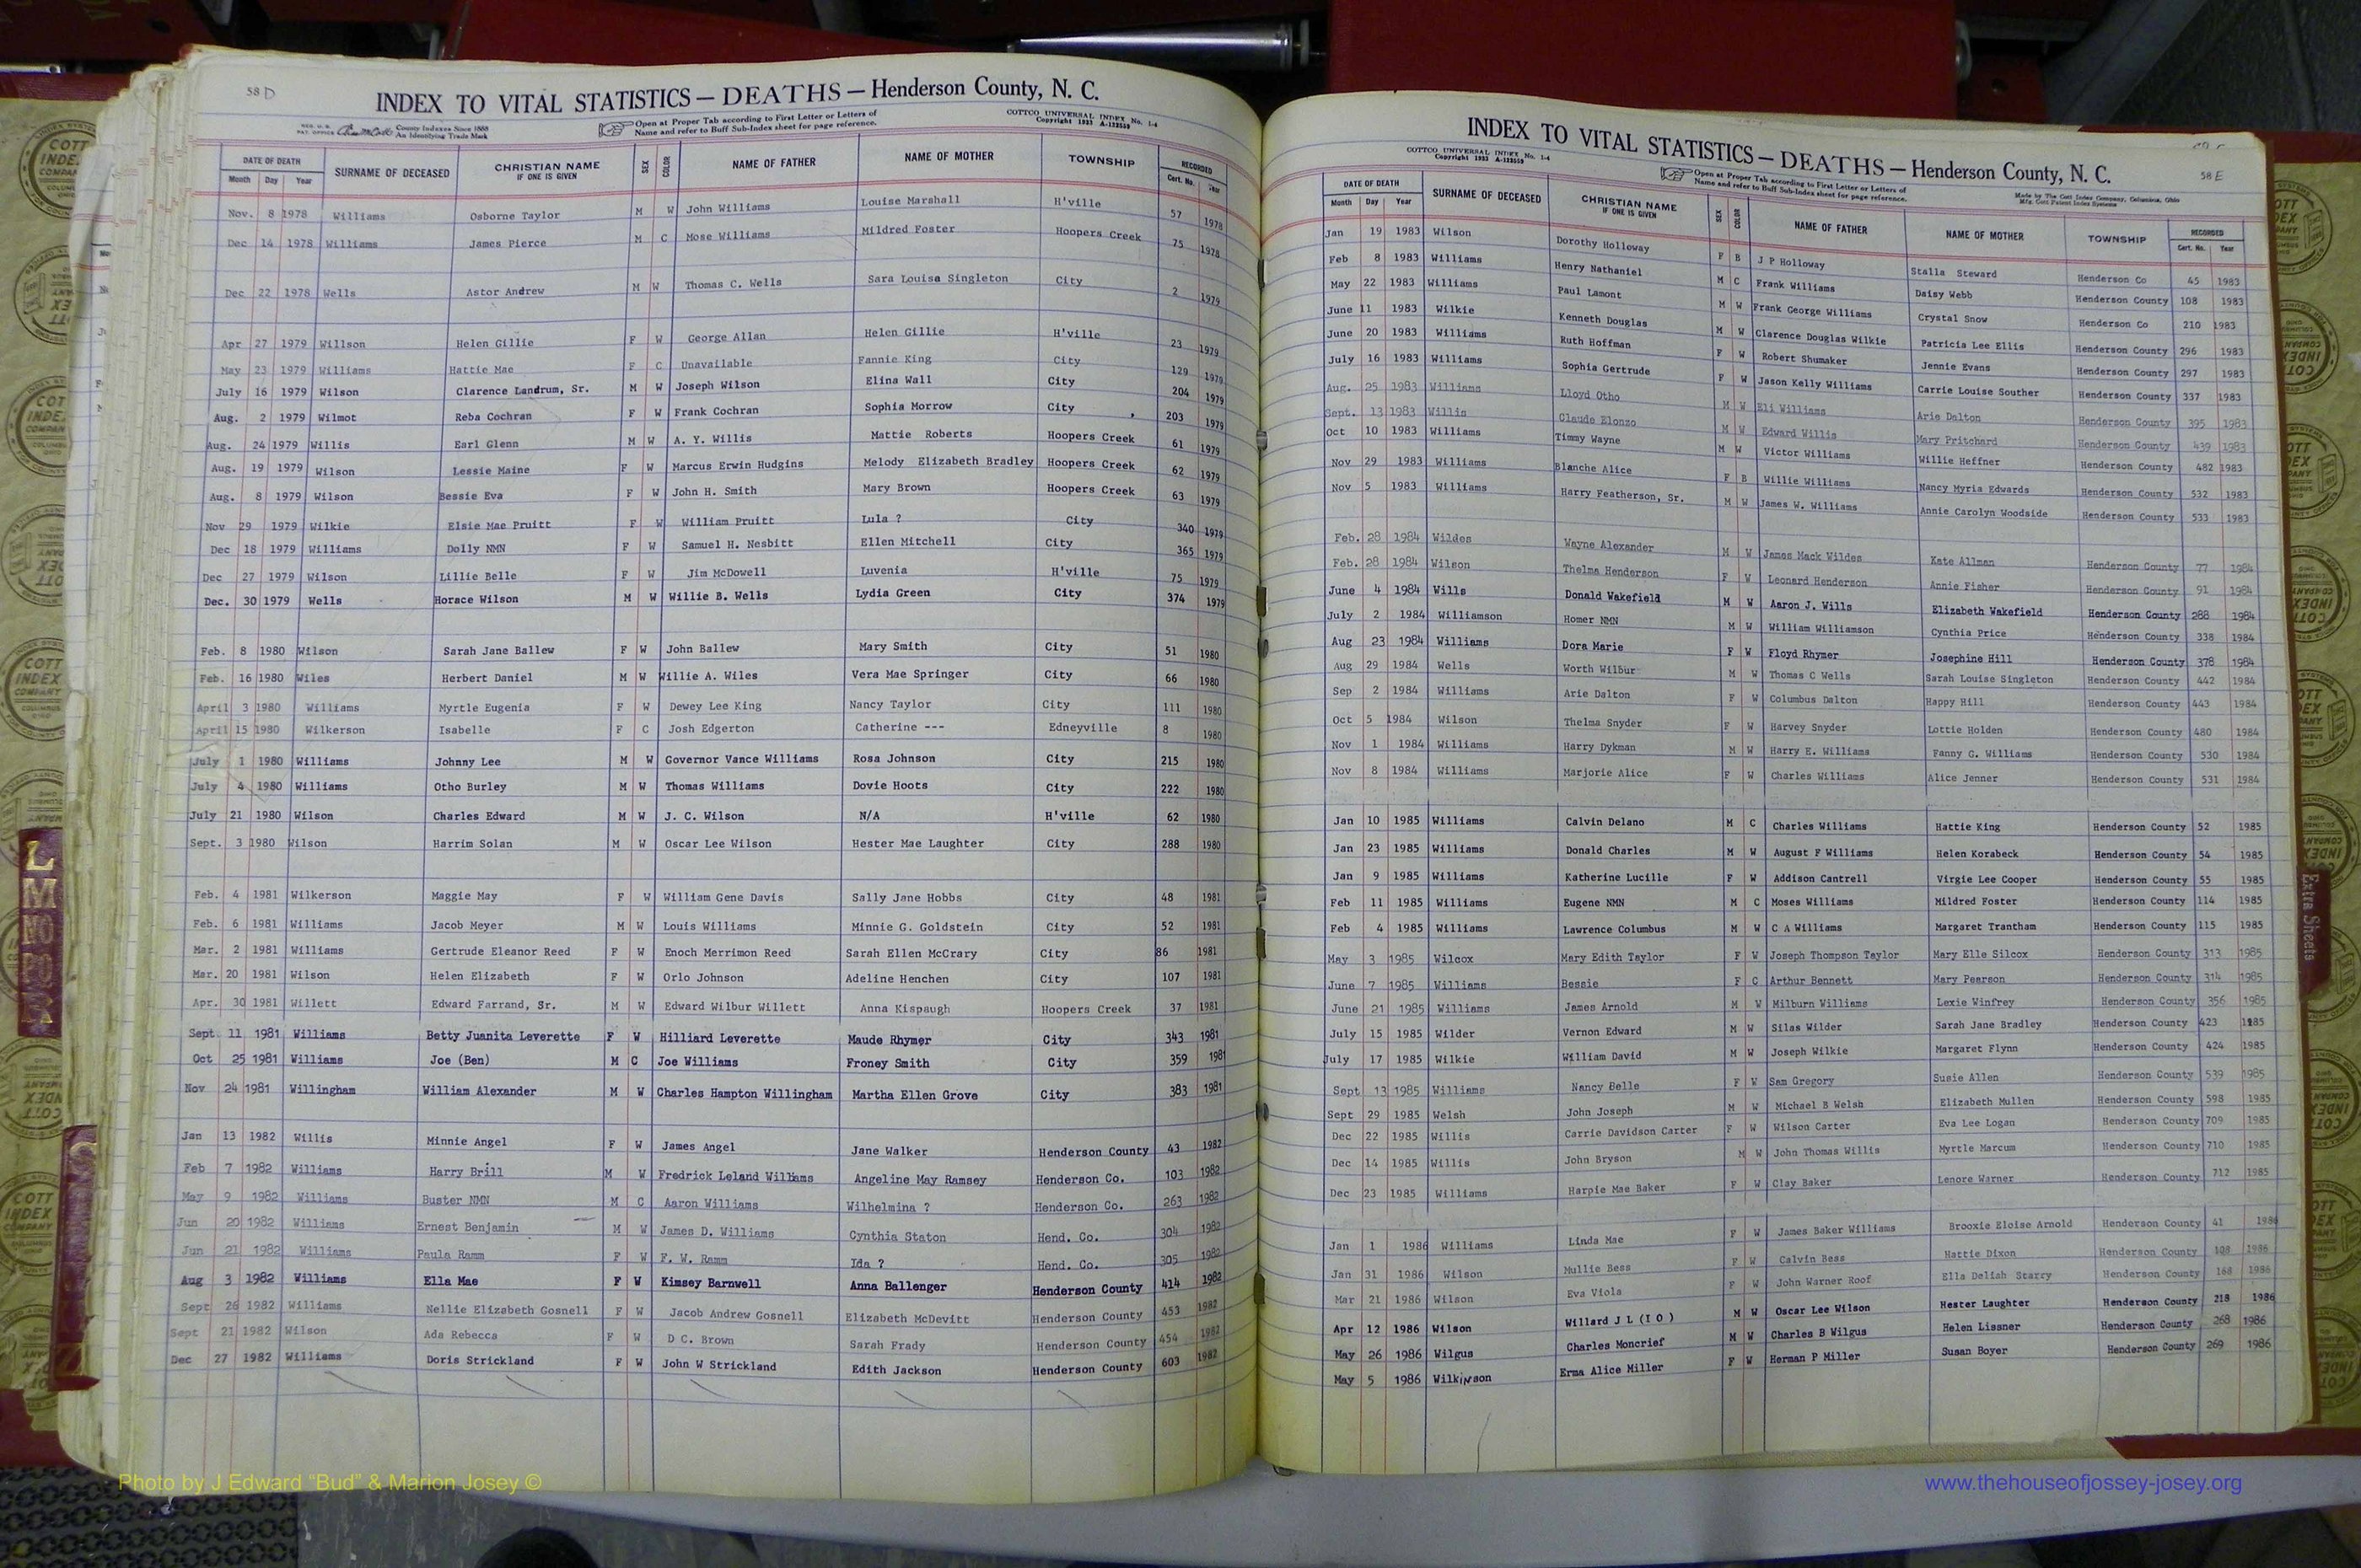 58 D
INDEX TO VITAL STATISTICS — DEATHS — Henderson County, N. C.
County Indexes Since 1888
An Identifying Trade Mark
Open at Proper Tab according to First Letter or Letters of
Name and refer to Buff Sub-Index sheet for page reference.
COTTCO UNIVERSAL INDEX No. 1-4
Copyright 1933 A-122559
DATE OF DEATH SURNAME OF DECEASED CHRISTIAN NAME IF ONE IS GIVEN SEX COLOR NAME OF FATHER NAME OF MOTHER TOWNSHIP RECORDED
Month Day Year Cert. No. Year
Nov. 8 1978 Williams Osborne Taylor M W John Williams Louise Marshall H'ville 57 1978
Dec 14 1978 Williams James Pierce M C Mose Williams Mildred Foster Hoopers Creek 75 1978
Dec 22 1978 Wells Astor Andrew M W Thomas C. Wells Sara Louise Singleton City 2 1979
Apr 27 1979 Willson Helen Gillie F W George Allan Helen Gillie H'ville 23 1979
May 23 1979 Williams Hattie Mae F C Unavailable Fannie King City 129 1979
July 16 1979 Wilson Clarence Landrum, Sr. M W Joseph Wilson Elina Wall City 204 1979
Aug. 2 1979 Wilmot Reba Cochran F W Frank Cochran Sophia Morrow City 203 1979
Aug. 24 1979 Willis Earl Glenn M W A. Y. Willis Mattie Roberts Hoopers Creek 61 1979
Aug. 19 1979 Wilson Lessie Maine F W Marcus Erwin Hudgins Melody Elizabeth Bradley Hoopers Creek 62 1979
Aug. 8 1979 Wilson Bessie Eva F W John H. Smith Mary Brown Hoopers Creek 63 1979
Nov 29 1979 Wilkie Elsie Mae Pruitt F W William Pruitt Lula ? City 340 1979
Dec 18 1979 Williams Dolly NMN F W Samuel H. Nesbitt Ellen Mitchell City 365 1979
Dec 27 1979 Wilson Lillie Belle F W Jim McDowell Luvenia H'ville 75 1979
Dec. 30 1979 Wells Horace Wilson M W Willie B. Wells Lydia Green City 374 1979
Feb. 8 1980 Wilson Sarah Jane Ballew F W John Ballew Mary Smith City 51 1980
Feb. 16 1980 Wiles Herbert Daniel M W Willie A. Wiles Vera Mae Springer City 66 1980
April 3 1980 Williams Myrtle Eugenia F W Dewey Lee King Nancy Taylor City 111 1980
April 15 1980 Wilkerson Isabelle F C Josh Edgerton Catherine --- Edneyville 8 1980
July 1 1980 Williams Johnny Lee M W Governor Vance Williams Rosa Johnson City 215 1980
July 4 1980 Williams Otho Burley M W Thomas Williams Dovie Hoots City 222 1980
July 21 1980 Wilson Charles Edward M W J. C. Wilson N/A H'ville 62 1980
Sept. 3 1980 Wilson Harrim Solan M W Oscar Lee Wilson Hester Mae Laughter City 288 1980
Feb. 4 1981 Wilkerson Maggie May F W William Gene Davis Sally Jane Hobbs City 48 1981
Feb. 6 1981 Williams Jacob Meyer M W Louis Williams Minnie G. Goldstein City 52 1981
Mar. 2 1981 Williams Gertrude Eleanor Reed F W Enoch Merrimon Reed Sarah Ellen McCrary City 86 1981
Mar. 20 1981 Wilson Helen Elizabeth F W Orlo Johnson Adeline Henchen City 107 1981
Apr. 30 1981 Willett Edward Farrand, Sr. M W Edward Wilbur Willett Anna Kispaugh Hoopers Creek 37 1981
Sept 11 1981 Williams Betty Juanita Leverette F W Hilliard Leverette Maude Rhymer City 343 1981
Oct 25 1981 Williams Joe (Ben) M C Joe Williams Froney Smith City 359 1981
Nov 24 1981 Willingham William Alexander M W Charles Hampton Willingham Martha Ellen Grove City 383 1981
Jan 13 1982 Willis Minnie Angel F W James Angel Jane Walker Henderson County 43 1982
Feb 7 1982 Williams Harry Brill M W Fredrick Leland Williams Angeline May Ramsey Henderson Co. 103 1982
May 9 1982 Williams Buster NMN M C Aaron Williams Wilhelmina ? Henderson Co. 263 1982
Jun 20 1982 Williams Ernest Benjamin M W James D. Williams Cynthia Staton Hend. Co. 304 1982
Jun 21 1982 Williams Paula Ramm F W F. W. Ramm Ida ? Hend. Co. 305 1982
Aug 3 1982 Williams Ella Mae F W Kimsey Barnwell Anna Ballenger Henderson County 414 1982
Sept 26 1982 Williams Nellie Elizabeth Gosnell F W Jacob Andrew Gosnell Elizabeth McDevitt Henderson County 453 1982
Sept 21 1982 Wilson Ada Rebecca F W D C. Brown Sarah Frady Henderson County 454 1982
Dec 27 1982 Williams Doris Strickland F W John W Strickland Edith Jackson Henderson County 603 1982
58 E
INDEX TO VITAL STATISTICS — DEATHS — Henderson County, N. C.
COTTCO UNIVERSAL INDEX No. 1-4
Copyright 1933 A-122559
Open at Proper Tab according to First Letter or Letters of
Name and refer to Buff Sub-Index sheet for page reference.
Made by The Cott Index Company, Columbus, Ohio
Mfg. Cott Patent Index Systems
DATE OF DEATH SURNAME OF DECEASED CHRISTIAN NAME IF ONE IS GIVEN SEX COLOR NAME OF FATHER NAME OF MOTHER TOWNSHIP RECORDED
Month Day Year Cert. No. Year
Jan 19 1983 Wilson Dorothy Holloway F B J P Holloway Stalla Steward Henderson Co 45 1983
Feb 8 1983 Williams Henry Nathaniel M C Frank Williams Daisy Webb Henderson County 108 1983
May 22 1983 Williams Paul Lamont M W Frank George Williams Crystal Snow Henderson Co 210 1983
June 11 1983 Wilkie Kenneth Douglas M W Clarence Douglas Wilkie Patricia Lee Ellis Henderson County 296 1983
June 20 1983 Williams Ruth Hoffman F W Robert Shumaker Jennie Evans Henderson County 297 1983
July 16 1983 Williams Sophia Gertrude F W Jason Kelly Williams Carrie Louise Souther Henderson County 337 1983
Aug. 25 1983 Williams Lloyd Otho M W Eli Williams Arie Dalton Henderson County 395 1983
Sept. 13 1983 Willis Claude Elonzo M W Edward Willis Mary Pritchard Henderson County 439 1983
Oct 10 1983 Williams Timmy Wayne M W Victor Williams Willie Heffner Henderson County 482 1983
Nov 29 1983 Williams Blanche Alice F B Willie Williams Nancy Myria Edwards Henderson County 532 1983
Nov 5 1983 Williams Harry Featherson, Sr. M W James W. Williams Annie Carolyn Woodside Henderson County 533 1983
Feb. 28 1984 Wildes Wayne Alexander M W James Mack Wildes Kate Allman Henderson County 77 1984
Feb. 28 1984 Wilson Thelma Henderson F W Leonard Henderson Annie Fisher Henderson County 91 1984
June 4 1984 Wills Donald Wakefield M W Aaron J. Wills Elizabeth Wakefield Henderson County 288 1984
July 2 1984 Williamson Homer NMN M W William Williamson Cynthia Price Henderson County 338 1984
Aug 23 1984 Williams Dora Marie F W Floyd Rhymer Josephine Hill Henderson County 378 1984
Aug 29 1984 Wells Worth Wilbur M W Thomas C Wells Sarah Louise Singleton Henderson County 442 1984
Sep 2 1984 Williams Arie Dalton F W Columbus Dalton Happy Hill Henderson County 443 1984
Oct 5 1984 Wilson Thelma Snyder F W Harvey Snyder Lottie Holden Henderson County 480 1984
Nov 1 1984 Williams Harry Dykman M W Harry E. Williams Fanny G. Williams Henderson County 530 1984
Nov 8 1984 Williams Marjorie Alice F W Charles Williams Alice Jenner Henderson County 531 1984
Jan 10 1985 Williams Calvin Delano M C Charles Williams Hattie King Henderson County 52 1985
Jan 23 1985 Williams Donald Charles M W August F Williams Helen Korabeck Henderson County 54 1985
Jan 9 1985 Williams Katherine Lucille F W Addison Cantrell Virgie Lee Cooper Henderson County 55 1985
Feb 11 1985 Williams Eugene NMN M C Moses Williams Mildred Foster Henderson County 114 1985
Feb 4 1985 Williams Lawrence Columbus M W C A Williams Margaret Trantham Henderson County 115 1985
May 3 1985 Wilcox Mary Edith Taylor F W Joseph Thompson Taylor Mary Elle Silcox Henderson County 313 1985
June 7 1985 Williams Bessie F C Arthur Bennett Mary Pearson Henderson County 314 1985
June 21 1985 Williams James Arnold M W Milburn Williams Lexie Winfrey Henderson County 356 1985
July 15 1985 Wilder Vernon Edward M W Silas Wilder Sarah Jane Bradley Henderson County 423 1985
July 17 1985 Wilkie William David M W Joseph Wilkie Margaret Flynn Henderson County 424 1985
Sept 13 1985 Williams Nancy Belle F W Sam Gregory Susie Allen Henderson County 539 1985
Sept 29 1985 Welsh John Joseph M W Michael B Welsh Elizabeth Mullen Henderson County 598 1985
Dec 22 1985 Willis Carrie Davidson Carter F W Wilson Carter Eva Lee Logan Henderson County 709 1985
Dec 14 1985 Willis John Bryson M W John Thomas Willis Myrtle Marcum Henderson County 710 1985
Dec 23 1985 Williams Harpie Mae Baker F W Clay Baker Lenore Warner Henderson County 712 1985
Jan 1 1986 Williams Linda Mae F W James Baker Williams Brooxie Eloise Arnold Henderson County 41 1986
Jan 31 1986 Wilson Mullie Bess F W Calvin Bess Hattie Dixon Henderson County 108 1986
Mar 21 1986 Wilson Eva Viola F W John Warner Roof Ella Deliah Starry Henderson County 168 1986
Apr 12 1986 Wilson Willard J L (I O ) M W Oscar Lee Wilson Hester Laughter Henderson County 218 1986
May 26 1986 Wilgus Charles Moncrief M W Charles B Wilgus Helen Lissner Henderson County 268 1986
May 5 1986 Wilkinson Erma Alice Miller F W Herman P Miller Susan Boyer Henderson County 269 1986
Extra Sheets
Photo by J Edward "Bud" & Marion Josey ©
www.thehouseofjossey-josey.org